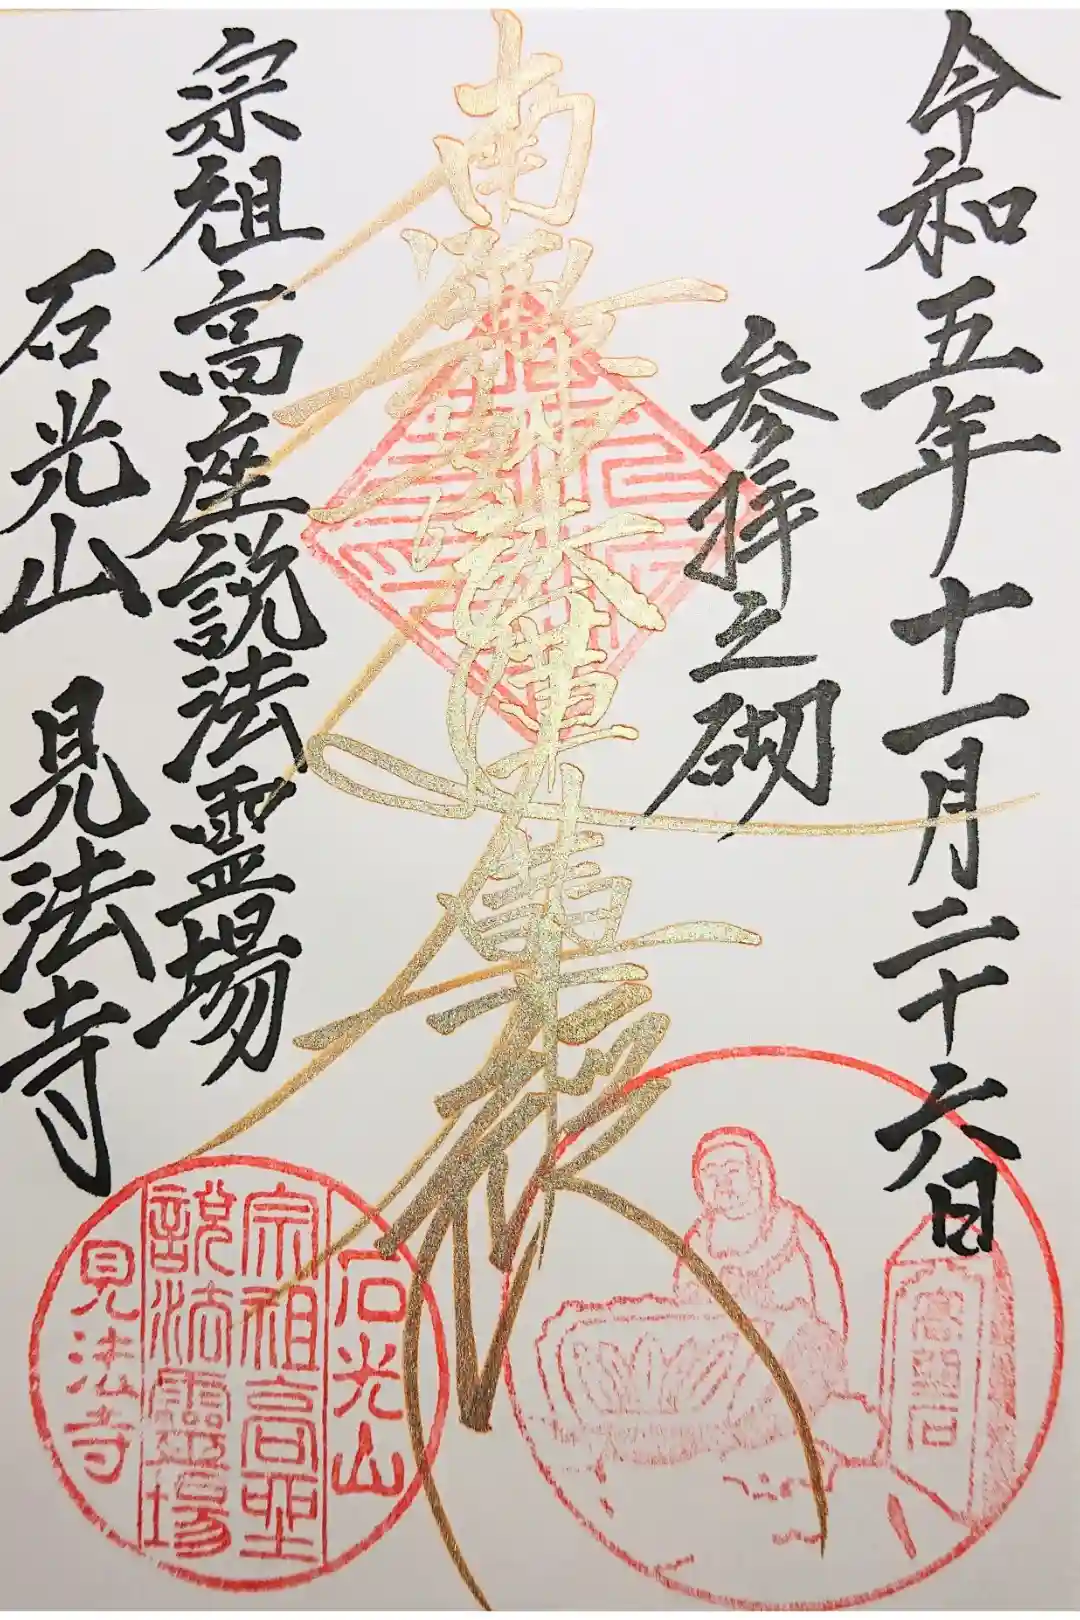 令和五年十一月二十六日
参拝之砌
南無妙法蓮華経
宗祖高座説法霊場
石光山 見法寺
石光山
宗祖高座
説法靈場
見法寺
高座石